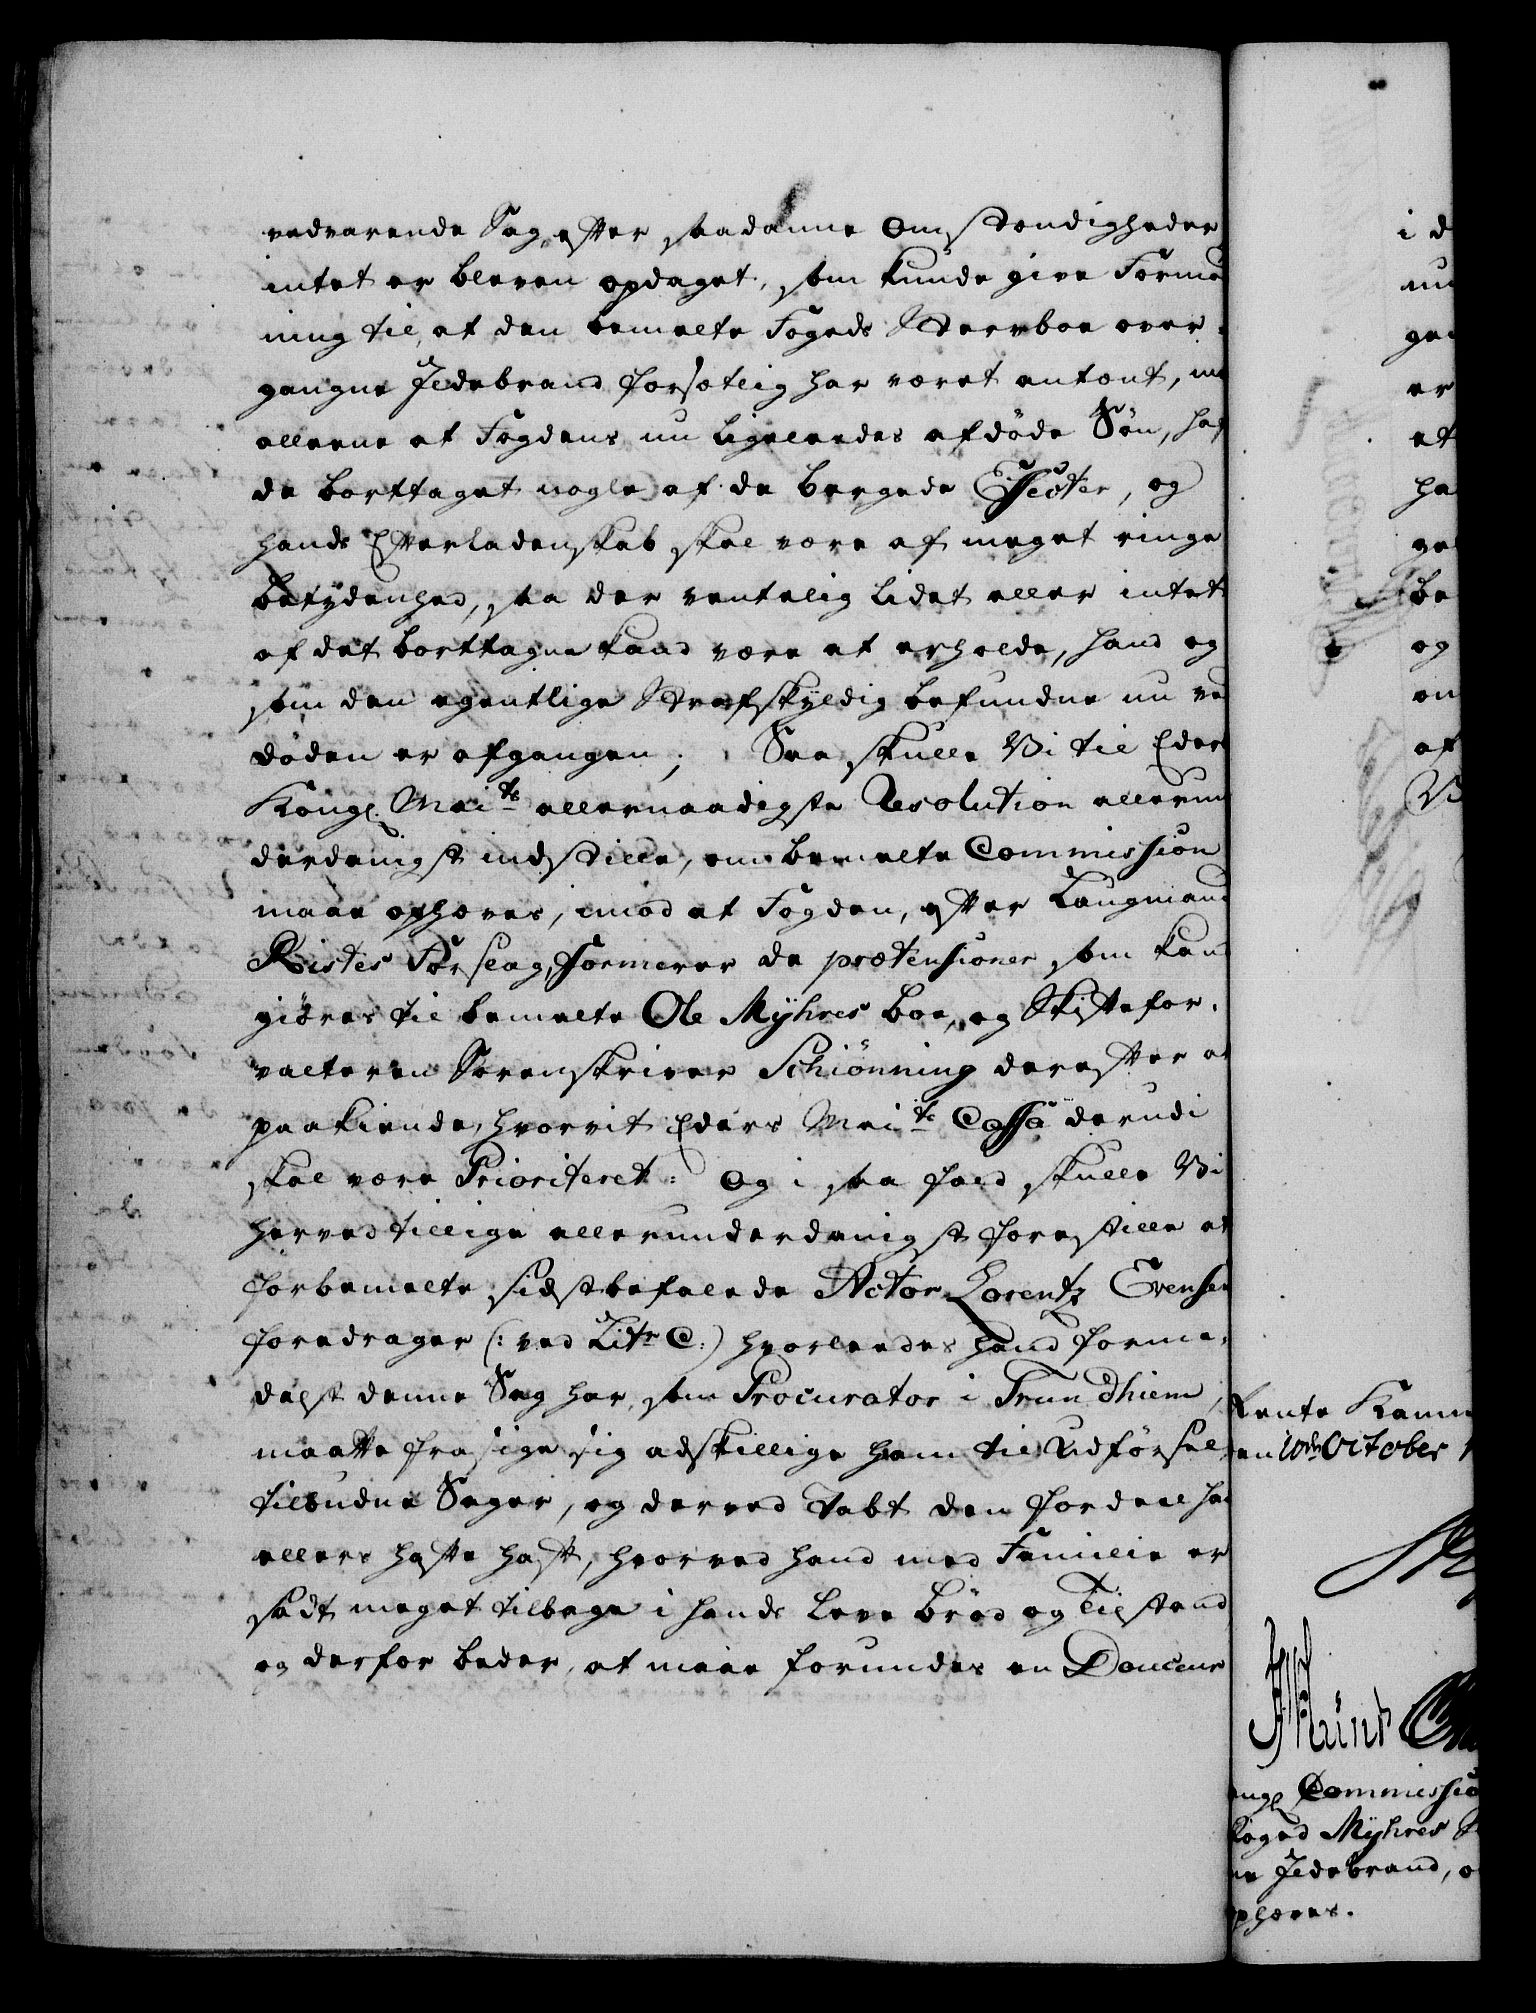 vedvarende Sag, efter saadanne Omstændigheder
intet er bleven opdaget, som kunde give Formo
ning til, at den bemelte Fogeds Sterrboe over-
gangne Ildebrand forsætlig har været antent, m
allene at Fogdens nu ligeleedes afdöde Sön, haf
de borttaget nogle af de bergede Effecter, og
hands Efterladenskab skal være af meget ringe
betydenhed, saa der ventelig lidet eller intet
af det borttagne kand være at erholde, hand og
som den egentlige Strafskyldig befundne nu ved
döden er afgangen; Saa skulle Vi til Eders
Kongl. Mai:ts allernaadigste Resolution allerun
derdanigst indstille, om bemelte Commission
maae ophæves, imod at Fogden, efter Laugmand
Ristes Forslag, formerer de prætensioner som kand
giöres til bemelte Ole Mÿhres boe, og Skiftefor-
valteren Sorenskriver Schiönning derefter at
paakiende, hvorvit Eders Mai:ts Cassa derudi
skal være Prioriteret: Og i saa fald skulle Vi
herved tillige allerunderdanigst forestille at
forbemelte sidstbefalede Actor Lorentz Evensen
foredrager (: ved Litr C:) hvorleedes hand forme-
delst denne Sag har, som Procurator i Trundhiem,
maatte frasige sig adskillige ham til Udförsel
tilbudne Sager, og derved tabt den fordeel ha
ellers hafte haft, hvorved hand med Familie er
sadt meget tilbage i hands Leve bröd og Tilstand
og derfor beder, at maae forundes en Douceur
i d
nu
ge
er
et
ha
ve
be
og
on
af
Vi
Rente Kamm
en 10de October
Münt
ongl Commissio
Foged Mÿhres
ne Ildebrand, o
ophæves.